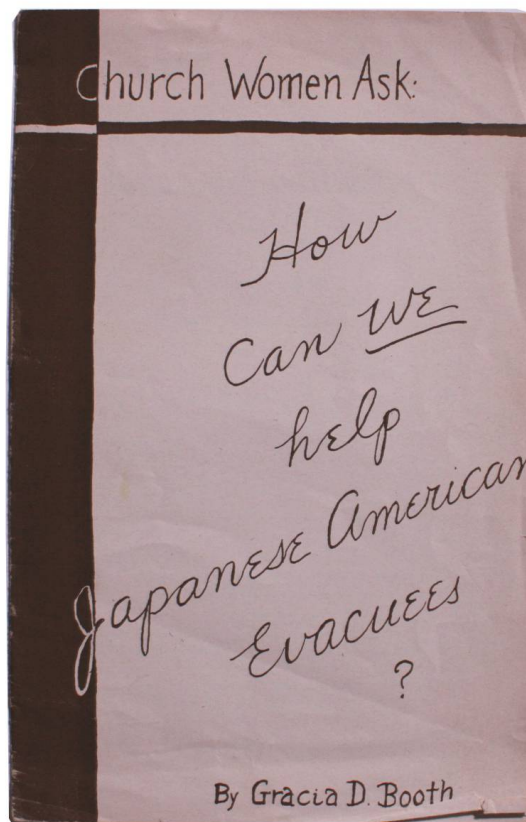 Church Women Ask:
How
Can WE
help
Japanese American
Evacuees
?
By Gracia D. Booth